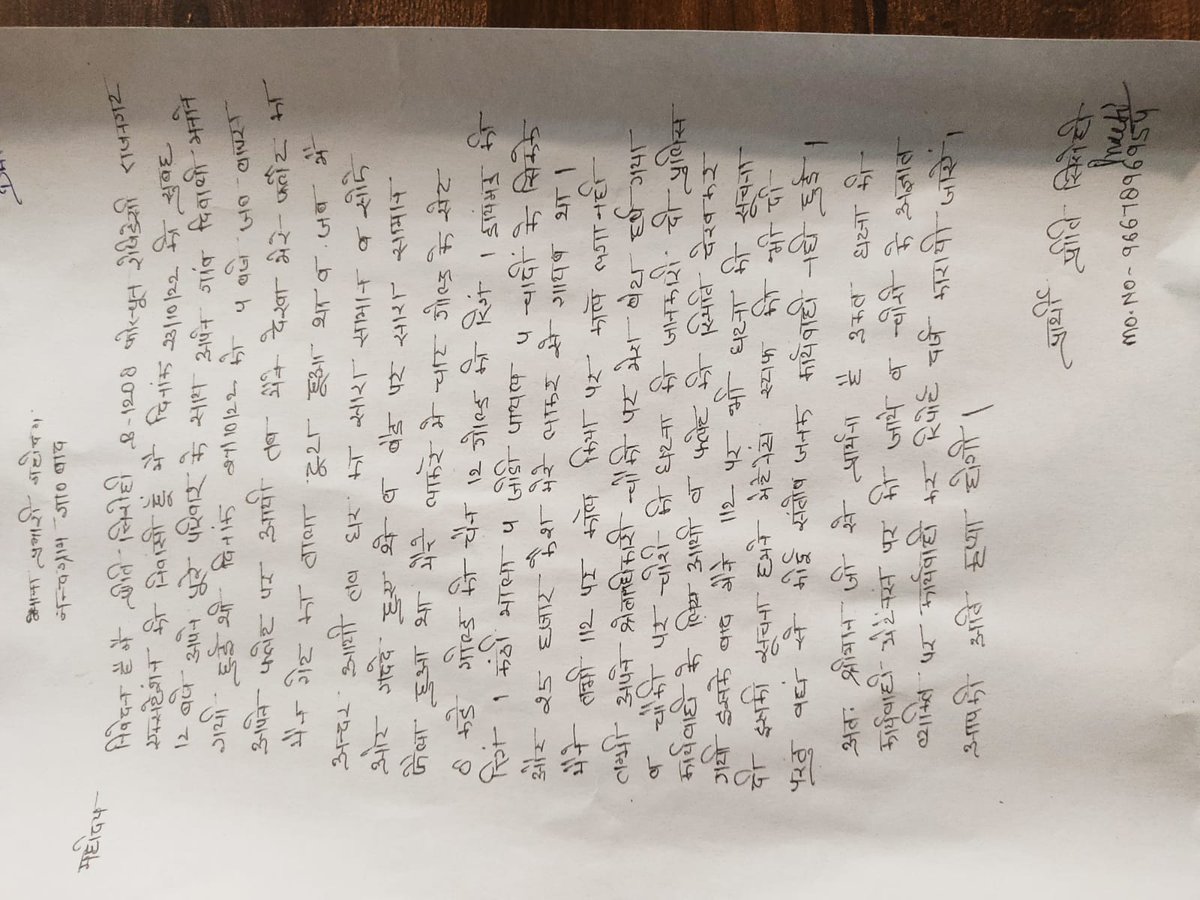 थाना प्रभारी महोदय
नन्दग्राम गा० बाद
महोदय
निवेदन है मै प्रीति सिरोही B-1208 फॉरच्यून रेसिडेंसी राजनगर
एक्सटेंशन की निवासी हूं मै दिनांक 23/10/22 को सुबह
12 बजे अपने पुरे परिवार के साथ अपने गांव दिवाली मनाने
गयी हुई थी दिनांक 27/10/22 को 4 बजे जब वापस
अपने फ्लैट पर आयी तब मैने देखा मेरे फ्लैट का
मैन गेट का ताला टूटा हुआ था व जब मै
अन्दर आयी तब घर का सारा सामान व सोफे
और गददे हुए थे व बैड पर सारा सामान
फैला हुआ था मेरे लाकर मे चार गोल्ड के सेट
8 कडे गोल्ड की चैन 12 गोल्ड की रिंग 1 डायमंड की
रिंग 1 कंठी माला 4 जोडी पायल 4 चादी के सिक्के
और 25 हजार कैश मेरे लाकर से गायब था।
मैने तभी 112 पर काल किया पर काल लगा नही
तभी अपने चौकी पर मेरा बेटा हर्ष गया
व चौकी पर चोरी की घटना की जानकारी दी पुलिस
कार्यवाही के लिए आयी व फ्लैट की स्थिति देखकर
गयी इसके बाद मैने 112 पर भी घटना की सूचना
दी इसकी सूचना हमने मेंटेनेंस स्टाफ को भी दी
परंतु वहां से कोई संतोष जनक कार्यवाही नही हुई।
अतः श्रीमान जी से प्रार्थना है उक्त घटना की
कार्यवाही मेंटेनेंस पर की जाये व चोरी के अज्ञात
व्यक्ति पर कार्यवाही कर रिपोर्ट दर्ज कारायी जाये।
आपकी अति कृप्या होगी।
प्रार्थी प्रीति सिरोही
Preeti
MO.NO- 9667896954